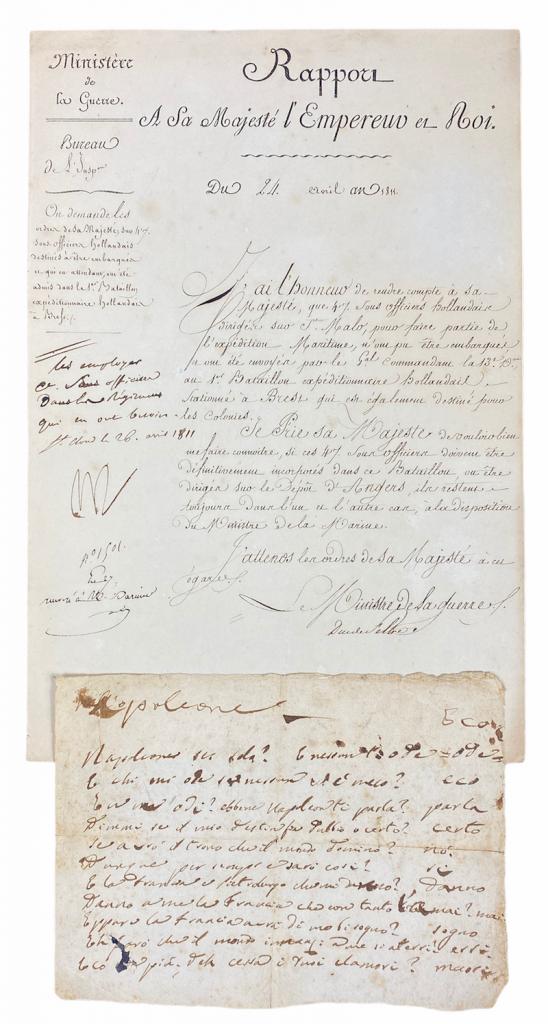 Ministère
de
la Guerre.
Bureau
de l'Insp.on
On demande les
ordres de Sa Majesté, sur 47.
sous officiers hollandais
destinés à être embarqués
et qui en attendant, ont été
admis dans le 1er Bataillon
expéditionnaire hollandais
à Brest.
les employer
ce sous officiers
dans les Régimens
qui en ont besoin
St. Cloud le 26. avril 1811
N
No 1501.
renvoyé à Mr.
Rapport
A Sa Majesté l'Empereur et Roi.
Du 24. avril an 1811.
J'ai l'honneur de rendre compte à Sa
Majesté, que 47 sous officiers hollandais
dirigés sur St. Malo, pour faire partie de
l'expédition Maritime, n'ont pu être embarqués
et ont été envoyés par le Gal commandant la 13e Don
au 1er Bataillon expéditionnaire Hollandais,
stationné à Brest qui est également destiné pour
les Colonies.
Je Prie Sa Majesté de vouloir bien
me faire connoître, si ces 47 sous officiers doivent être
définitivement incorporés dans ce Bataillon, ou être
dirigés sur le Dépôt d'Angers, ils restent
toujours dans l'un et l'autre cas, à la disposition
du Ministre de la Marine.
J'attends les ordres de Sa Majesté à cet
égard.
Le Ministre de la guerre
Duc de Feltre
Napoleone
Eco
Napoleone sei solo? E nessun t'ode = ode =
E chi mi ode se nessun v'è meco? eco
tu m'odi? ebbene Napoleon ti parla? parla
Dimmi se il mio destin fia dubbio o certo? certo
se avrò il trono che il mondo domino? no.
Dunque per sempre sarò così? si
E la Francia danno
Danno a me la Francia che con tanto mai? mai
Eppure la Francia avrà di me bisogno? sogno
che il mondo
Eco deh cessa i tuoi clamori? mori